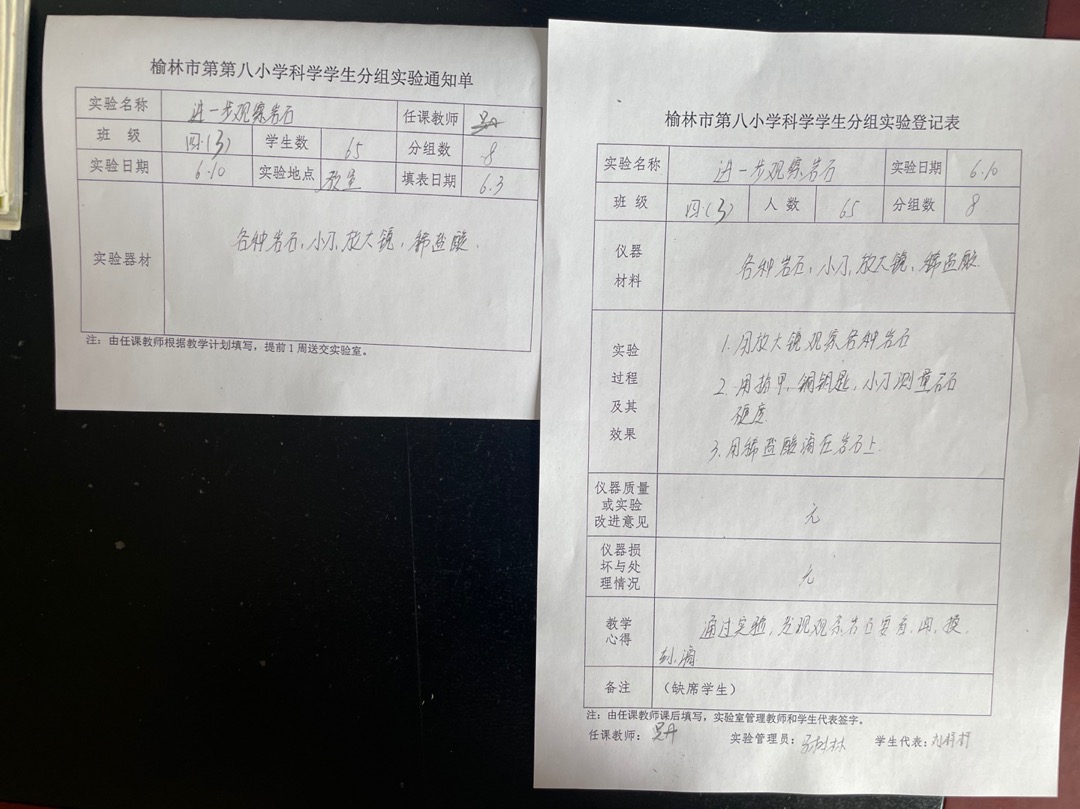 榆林市第第八小学科学学生分组实验通知单
实验名称 进一步观察岩石 任课教师
班 级 四(3) 学生数 65 分组数 8
实验日期 6.10 实验地点 教室 填表日期 6.3
实验器材 各种岩石、小刀、放大镜、稀盐酸.
注：由任课教师根据教学计划填写，提前1周送交实验室。
榆林市第八小学科学学生分组实验登记表
实验名称 进一步观察岩石 实验日期 6.10
班 级 四(3) 人 数 65 分组数 8
仪器
材料
各种岩石、小刀、放大镜、稀盐酸.
实验
过程
及其
效果
1.用放大镜观察各种岩石
2.用指甲、铜钥匙、小刀测量岩石
硬度
3.用稀盐酸滴在岩石上.
仪器质量
或实验
改进意见
无
仪器损
坏与处
理情况
无
教学
心得
通过实验,发现观察岩石要看、闻、摸、
刻、滴
备注 （缺席学生）
注：由任课教师课后填写，实验室管理教师和学生代表签字。
任课教师： 实验管理员： 学生代表：